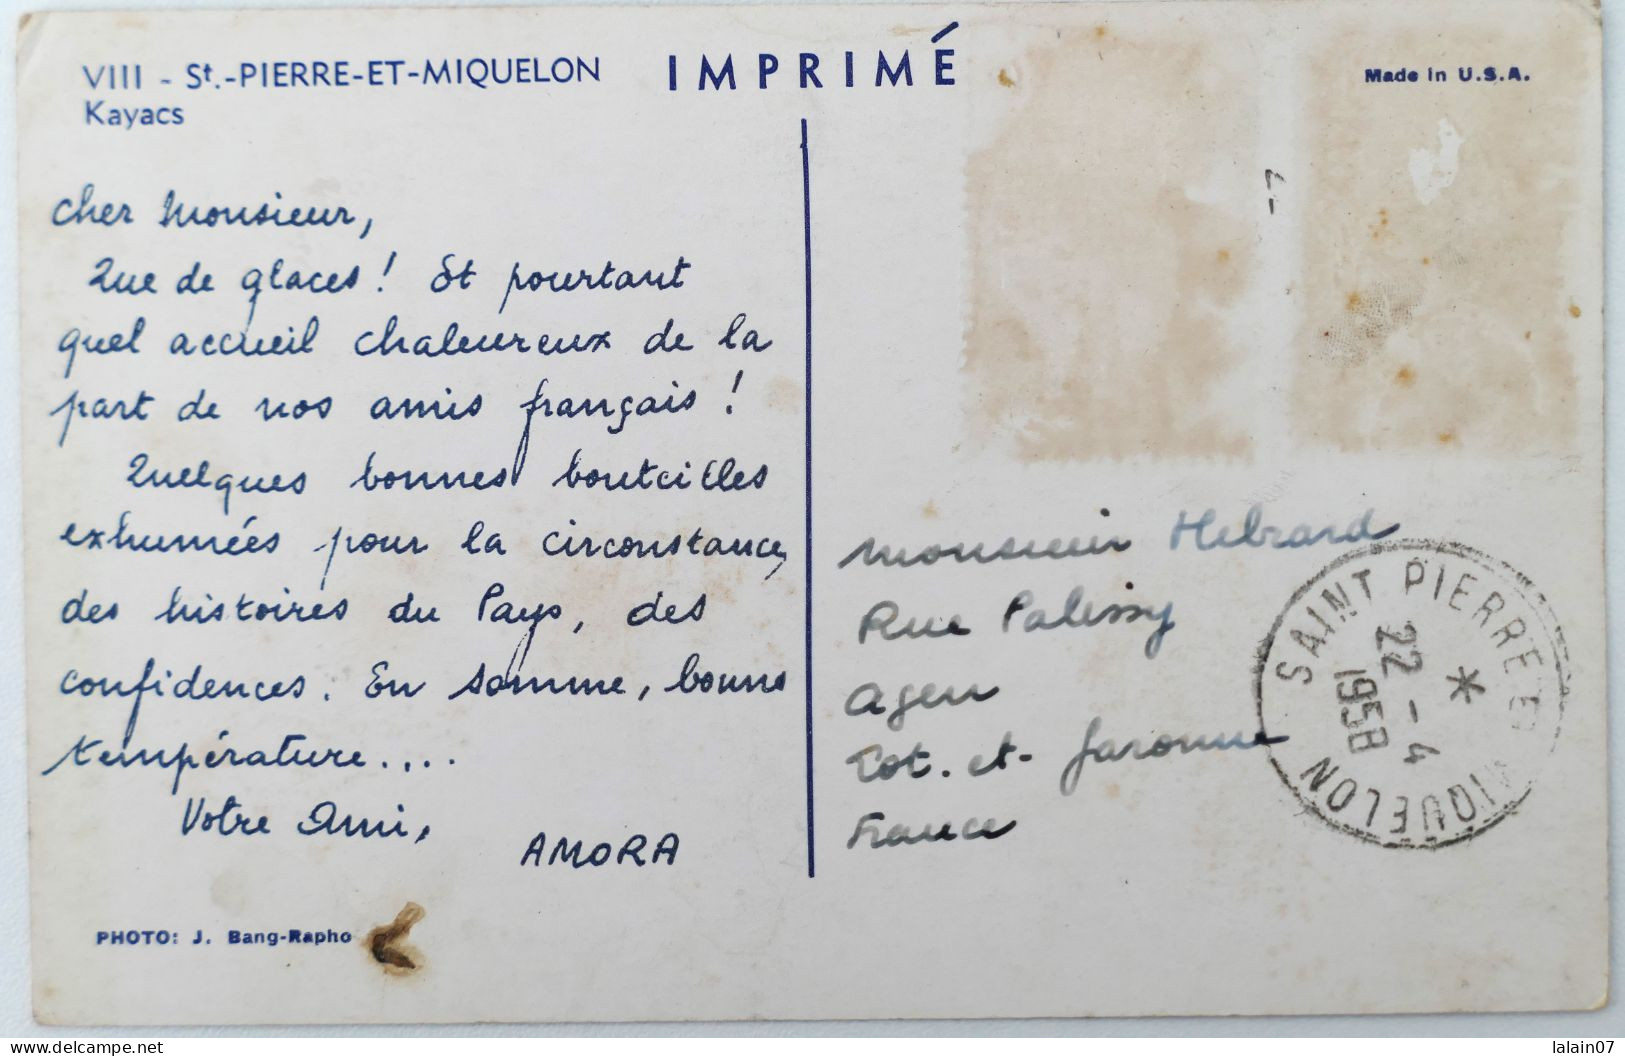 VIII - St.-PIERRE-ET-MIQUELON
Kayacs
IMPRIMÉ
Made in U.S.A.
Cher Monsieur,
Que de glaces ! Et pourtant
quel accueil chaleureux de la
part de nos amis français !
Quelques bonnes bouteilles
exhumées pour la circonstance,
des histoires du Pays, des
confidences. En somme, bonne
température....
Votre Ami,
AMORA
PHOTO: J. Bang-Rapho
Monsieur Hebrard
Rue Palissy
Agen
Lot-et-Garonne
France
SAINT PIERRE ET MIQUELON
22-4
1958
*
lalain07